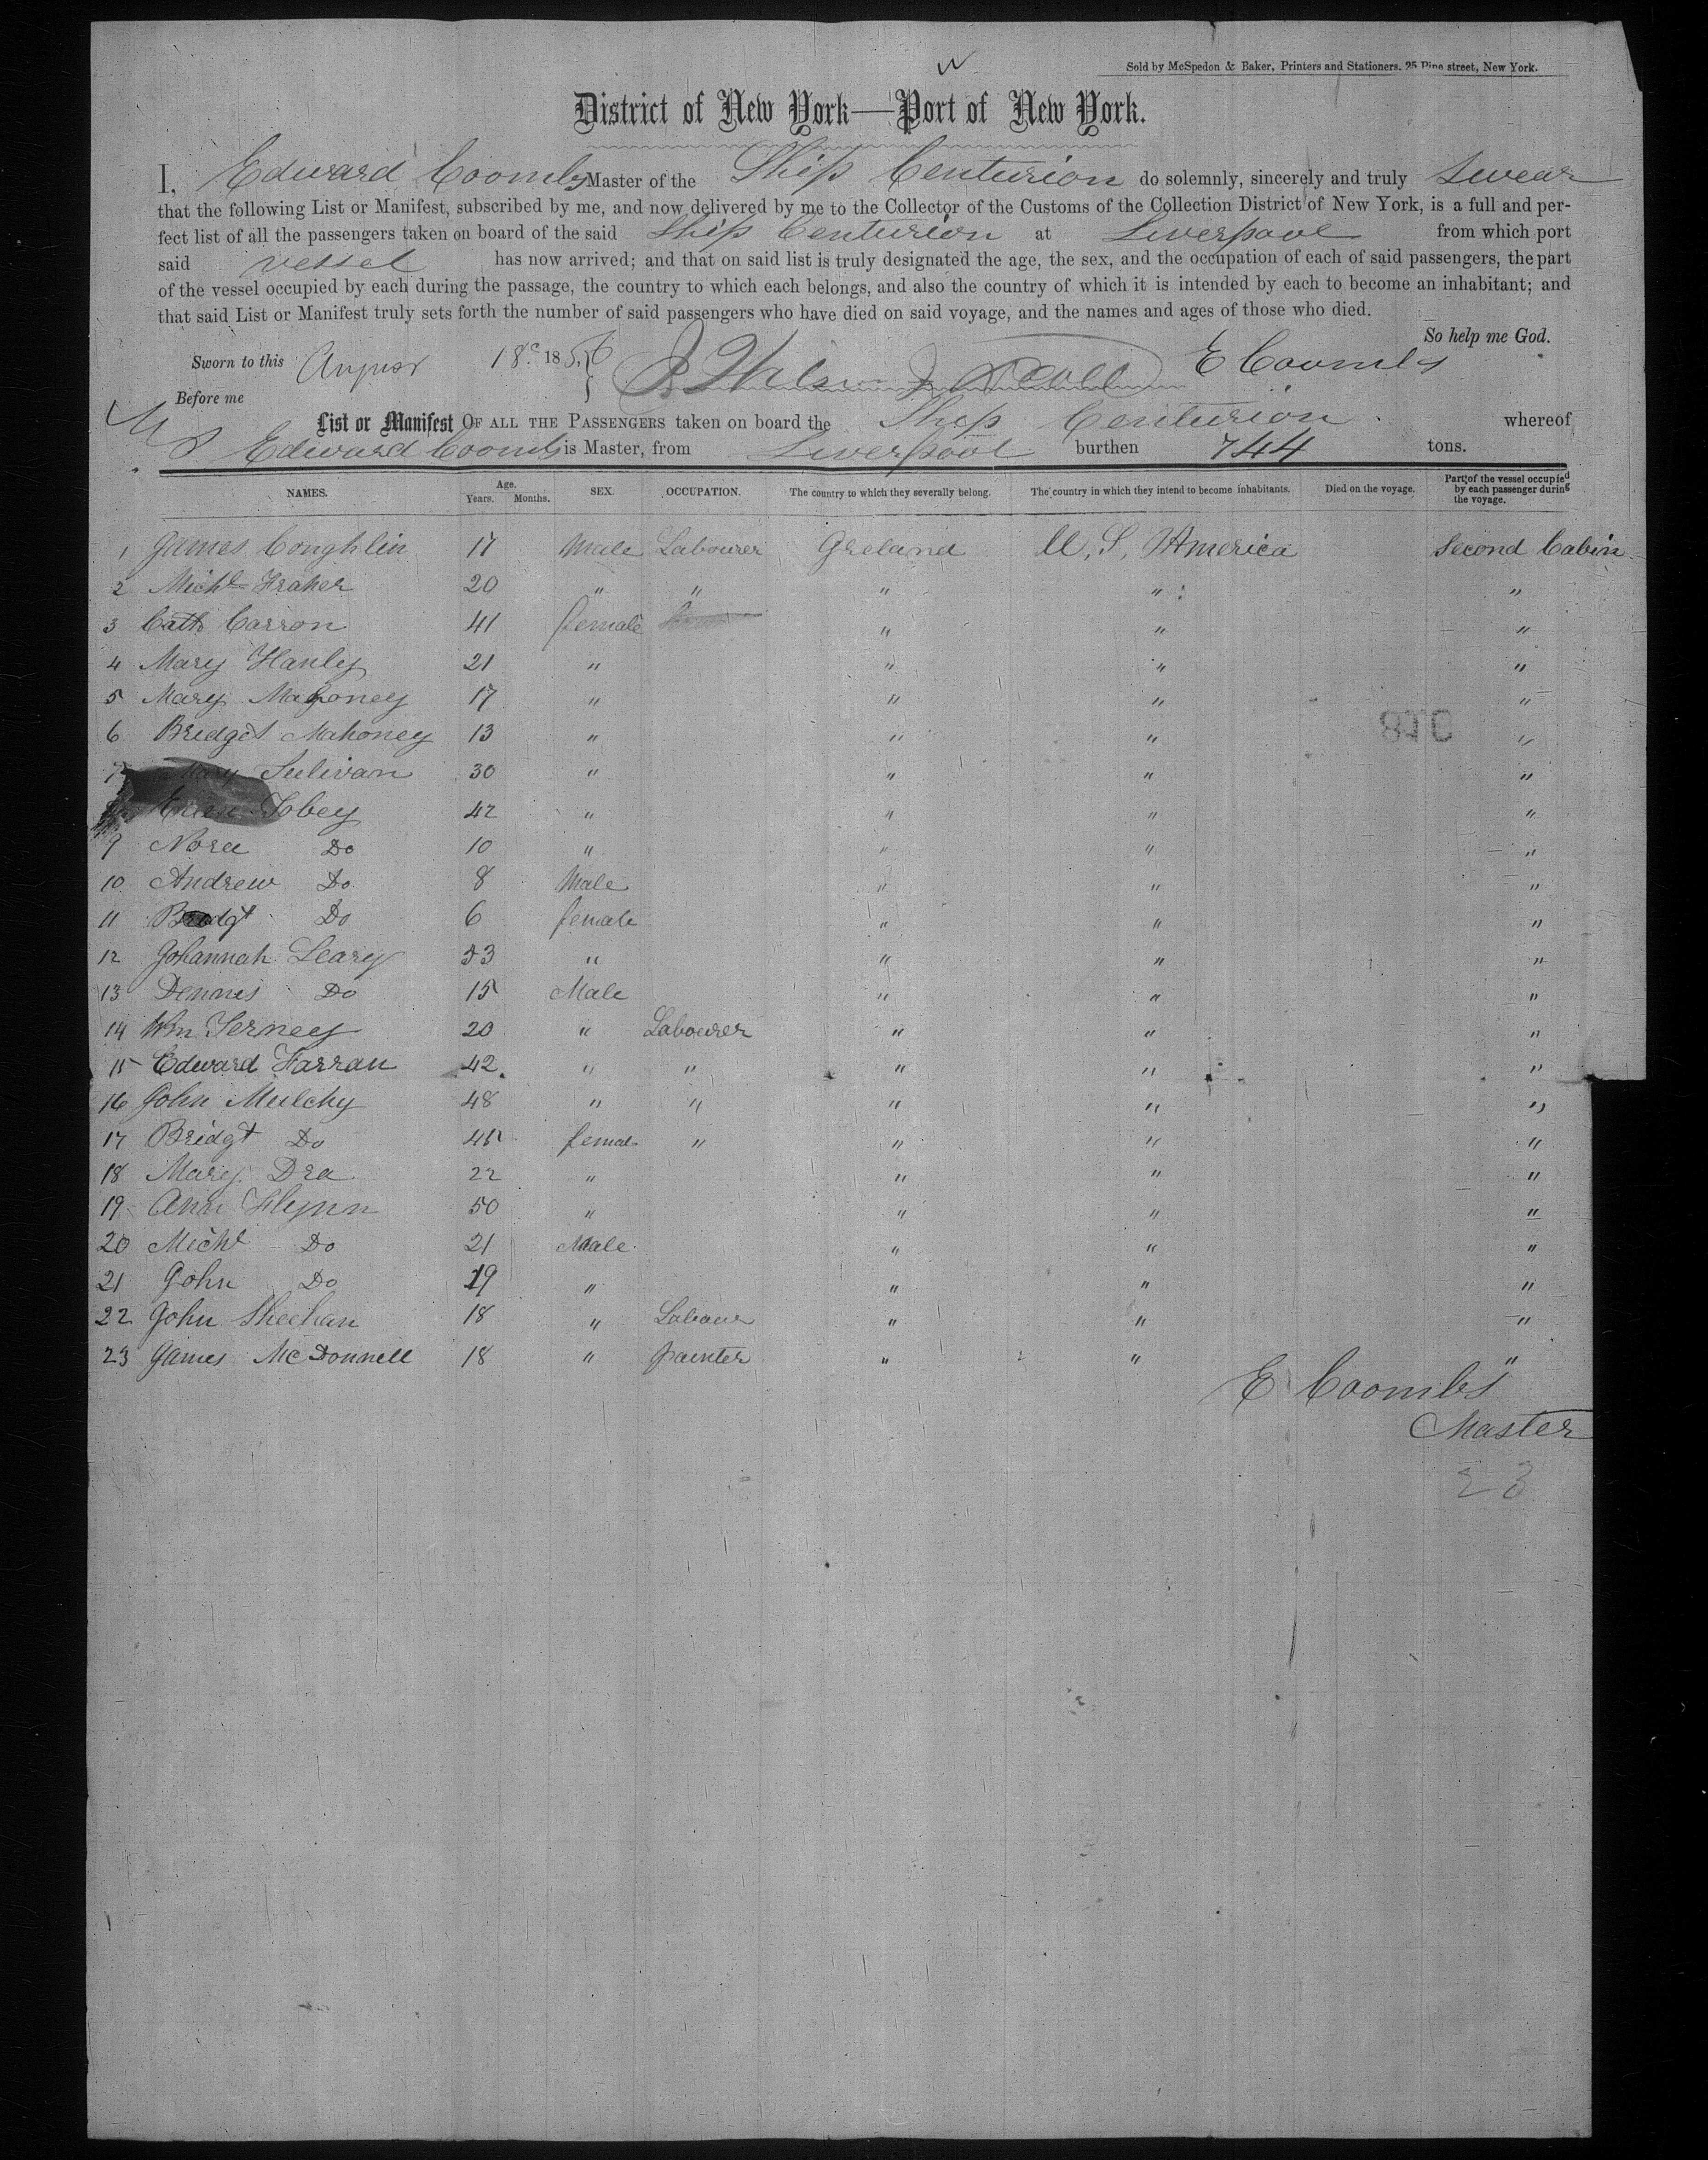 Sold by McSpedon & Baker, Printers and Stationers. 25 Pine street, New York.
District of New York—Port of New York.
I, Edward Coombs Master of the Ship Centurion do solemnly, sincerely and truly swear
that the following List or Manifest, subscribed by me, and now delivered by me to the Collector of the Customs of the Collection District of New York, is a full and per-
fect list of all the passengers taken on board of the said Ship Centurion at Liverpool from which port
said vessel has now arrived; and that on said list is truly designated the age, the sex, and the occupation of each of said passengers, the part
of the vessel occupied by each during the passage, the country to which each belongs, and also the country of which it is intended by each to become an inhabitant; and
that said List or Manifest truly sets forth the number of said passengers who have died on said voyage, and the names and ages of those who died.
So help me God.
Sworn to this August 18 1856 E Coombs
Before me
List or Manifest OF ALL THE PASSENGERS taken on board the Ship Centurion whereof
Edward Coombs is Master, from Liverpool burthen 744 tons.
NAMES. Age. Years. Months. SEX. OCCUPATION. The country to which they severally belong. The country in which they intend to become inhabitants. Died on the voyage. Part of the vessel occupied by each passenger during the voyage.
1 James Coughlin 17 Male Labourer Ireland U, S, America Second Cabin
2 Michl Fraher 20 " " " " "
3 Cath Carron 41 female " " "
4 Mary Hanly 21 " " " "
5 Mary Mahoney 17 " " " "
6 Bridget Mahoney 13 " " " "
7 Mary Sulivan 30 " " " "
Tobey 42 " " " "
9 Nora Do 10 " " " "
10 Andrew Do 8 Male " " "
11 Bridgt Do 6 female " " "
12 Johannah Leary 53 " " " "
13 Dennis Do 15 Male " " "
14 Wm Terney 20 " Labourer " " "
15 Edward Farran 42 " " " " "
16 John Mulchy 48 " " " " "
17 Bridgt Do 45 female " " " "
18 Mary Dra 22 " " " "
19 Ann Flynn 50 " " " "
20 Michl Do 21 Male " " "
21 John Do 19 " " " "
22 John Sheehan 18 " Labour " " "
23 James McDonnell 18 " painter " " "
E Coombs
Master
23